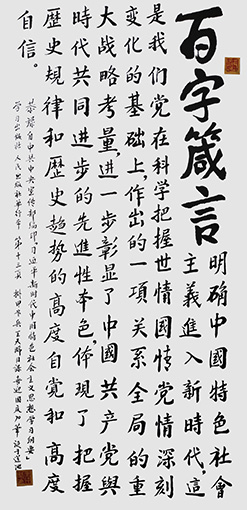 百字箴言
明确中國特色社會
主義進入新時代，這
是我们党在科学把握世情國情党情深刻
变化的基础上，作出的一項关系全局的重
大战略考量，進一步彰显了中國共产党與
時代共同進步的先進性本色，体現了把握
歷史規律和歷史趋势的高度自觉和高度
自信。
恭录自中共中央宣传部编印習近平新時代中國特色社会主义思想学习纲要
学习出版社 人民出版社